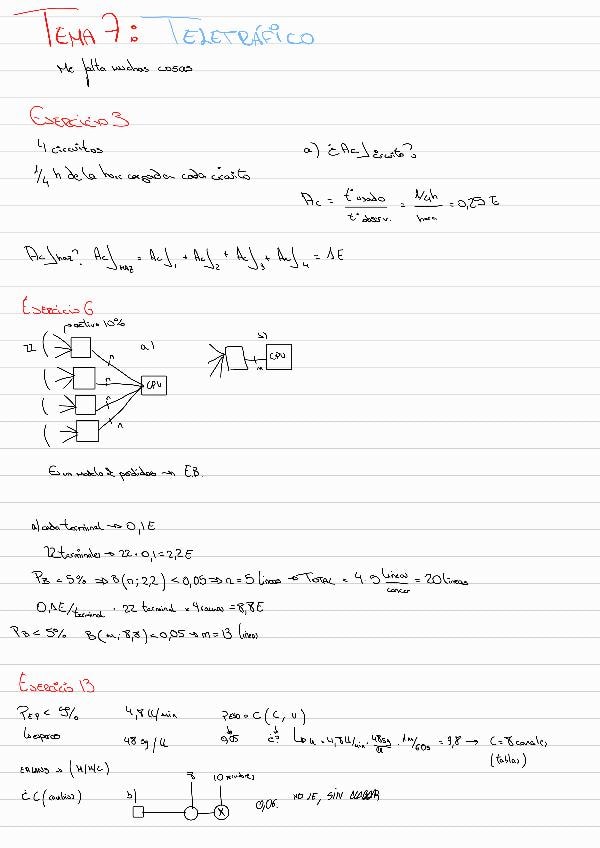 TEMA 7: TELETRÁFICO
Me falta muchas cosas
EJERCICIO 3
4 circuitos
1/4 h de la hora cargados cada circuito
a) ¿Ac]circuito?
Ac = tº usado / tº observ. = 1/4h / hora = 0,25 E
Ac]haz? Ac]HAZ = Ac]1 + Ac]2 + Ac]3 + Ac]4 = 1E
EJERCICIO 6
positivo 10%
22
a)
n
CPU
n
b)
m
CPU
Es un modelo de perdidas → E.B.
a) cada terminal → 0,1E
22 terminales → 22 · 0,1 = 2,2E
PB = 5% ⇒ B(n; 2,2) < 0,05 ⇒ n = 5 lineas → TOTAL = 4 · 5 lineas/concen = 20 lineas
0,1E/terminal · 22 terminal · 4 = 8,8E
PB < 5% B(m; 8,8) < 0,05 → m = 13 lineas
EJERCICIO 13
PESP < 5% 4,8 ll/min PESP = C(C, u)
espera 48 sg/ll 0,05 c? u = 4,8 ll/min · 48sg/ll · 1m/60s = 3,8 → C = 8 canales
(tablas)
ERLANG → (M/M/C)
¿C (canales)
b)
8
10
X
0,05. NO SE, SIN